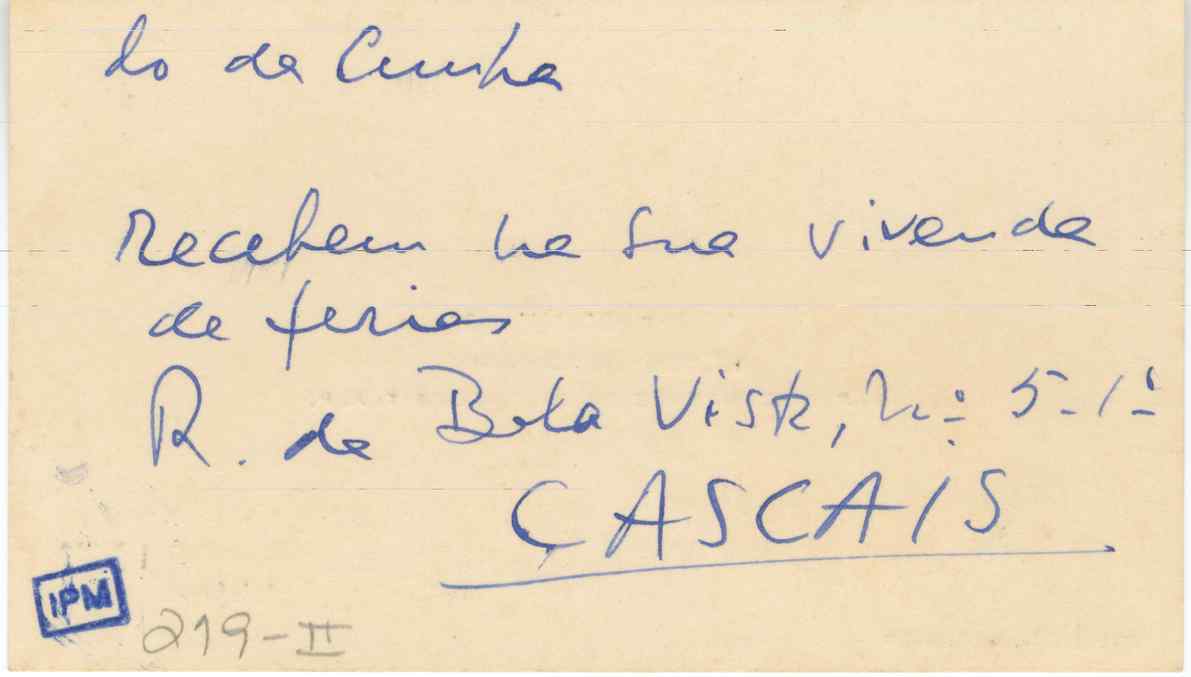 do da Cunha
Recebem na sua vivenda
de ferias
R. da Bela Vista, nº 5-1º
CASCAIS
IPM
219-II